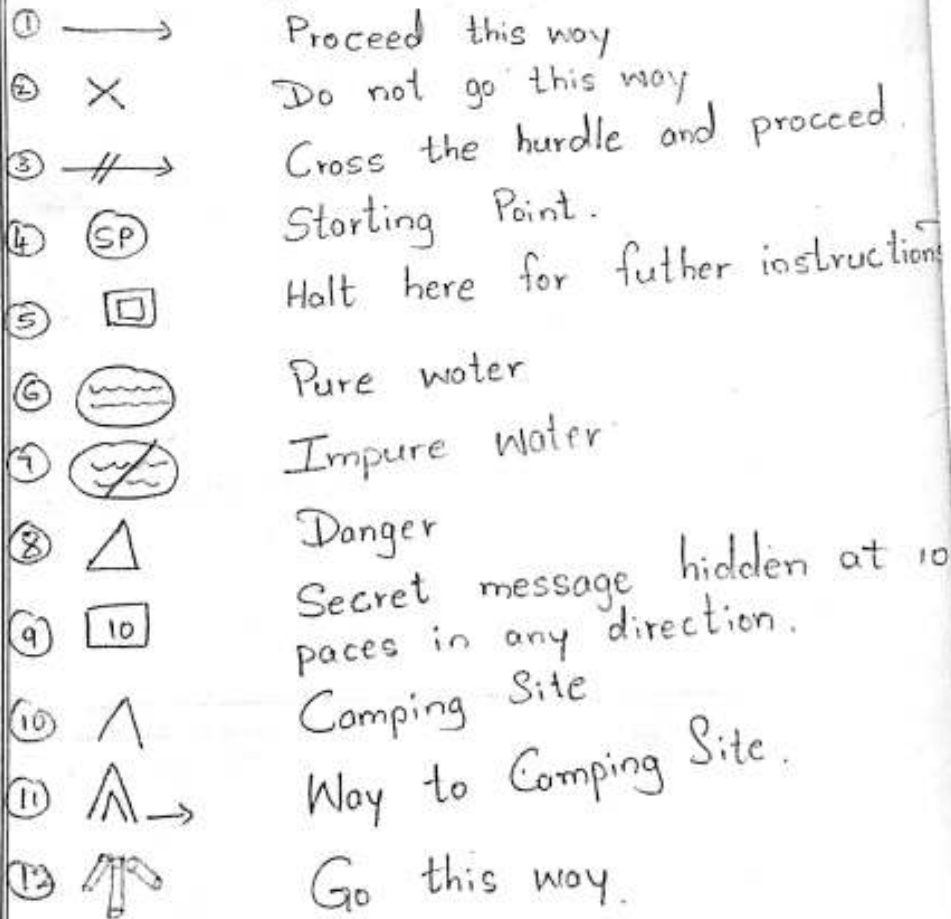 ① Proceed this way
② Do not go this way
③ Cross the hurdle and proceed.
④ SP Starting Point.
⑤ Halt here for futher instructions
⑥ Pure water
⑦ Impure water
⑧ Danger
⑨ 10 Secret message hidden at 10
paces in any direction.
⑩ Camping Site
⑪ Way to Camping Site.
⑫ Go this way.